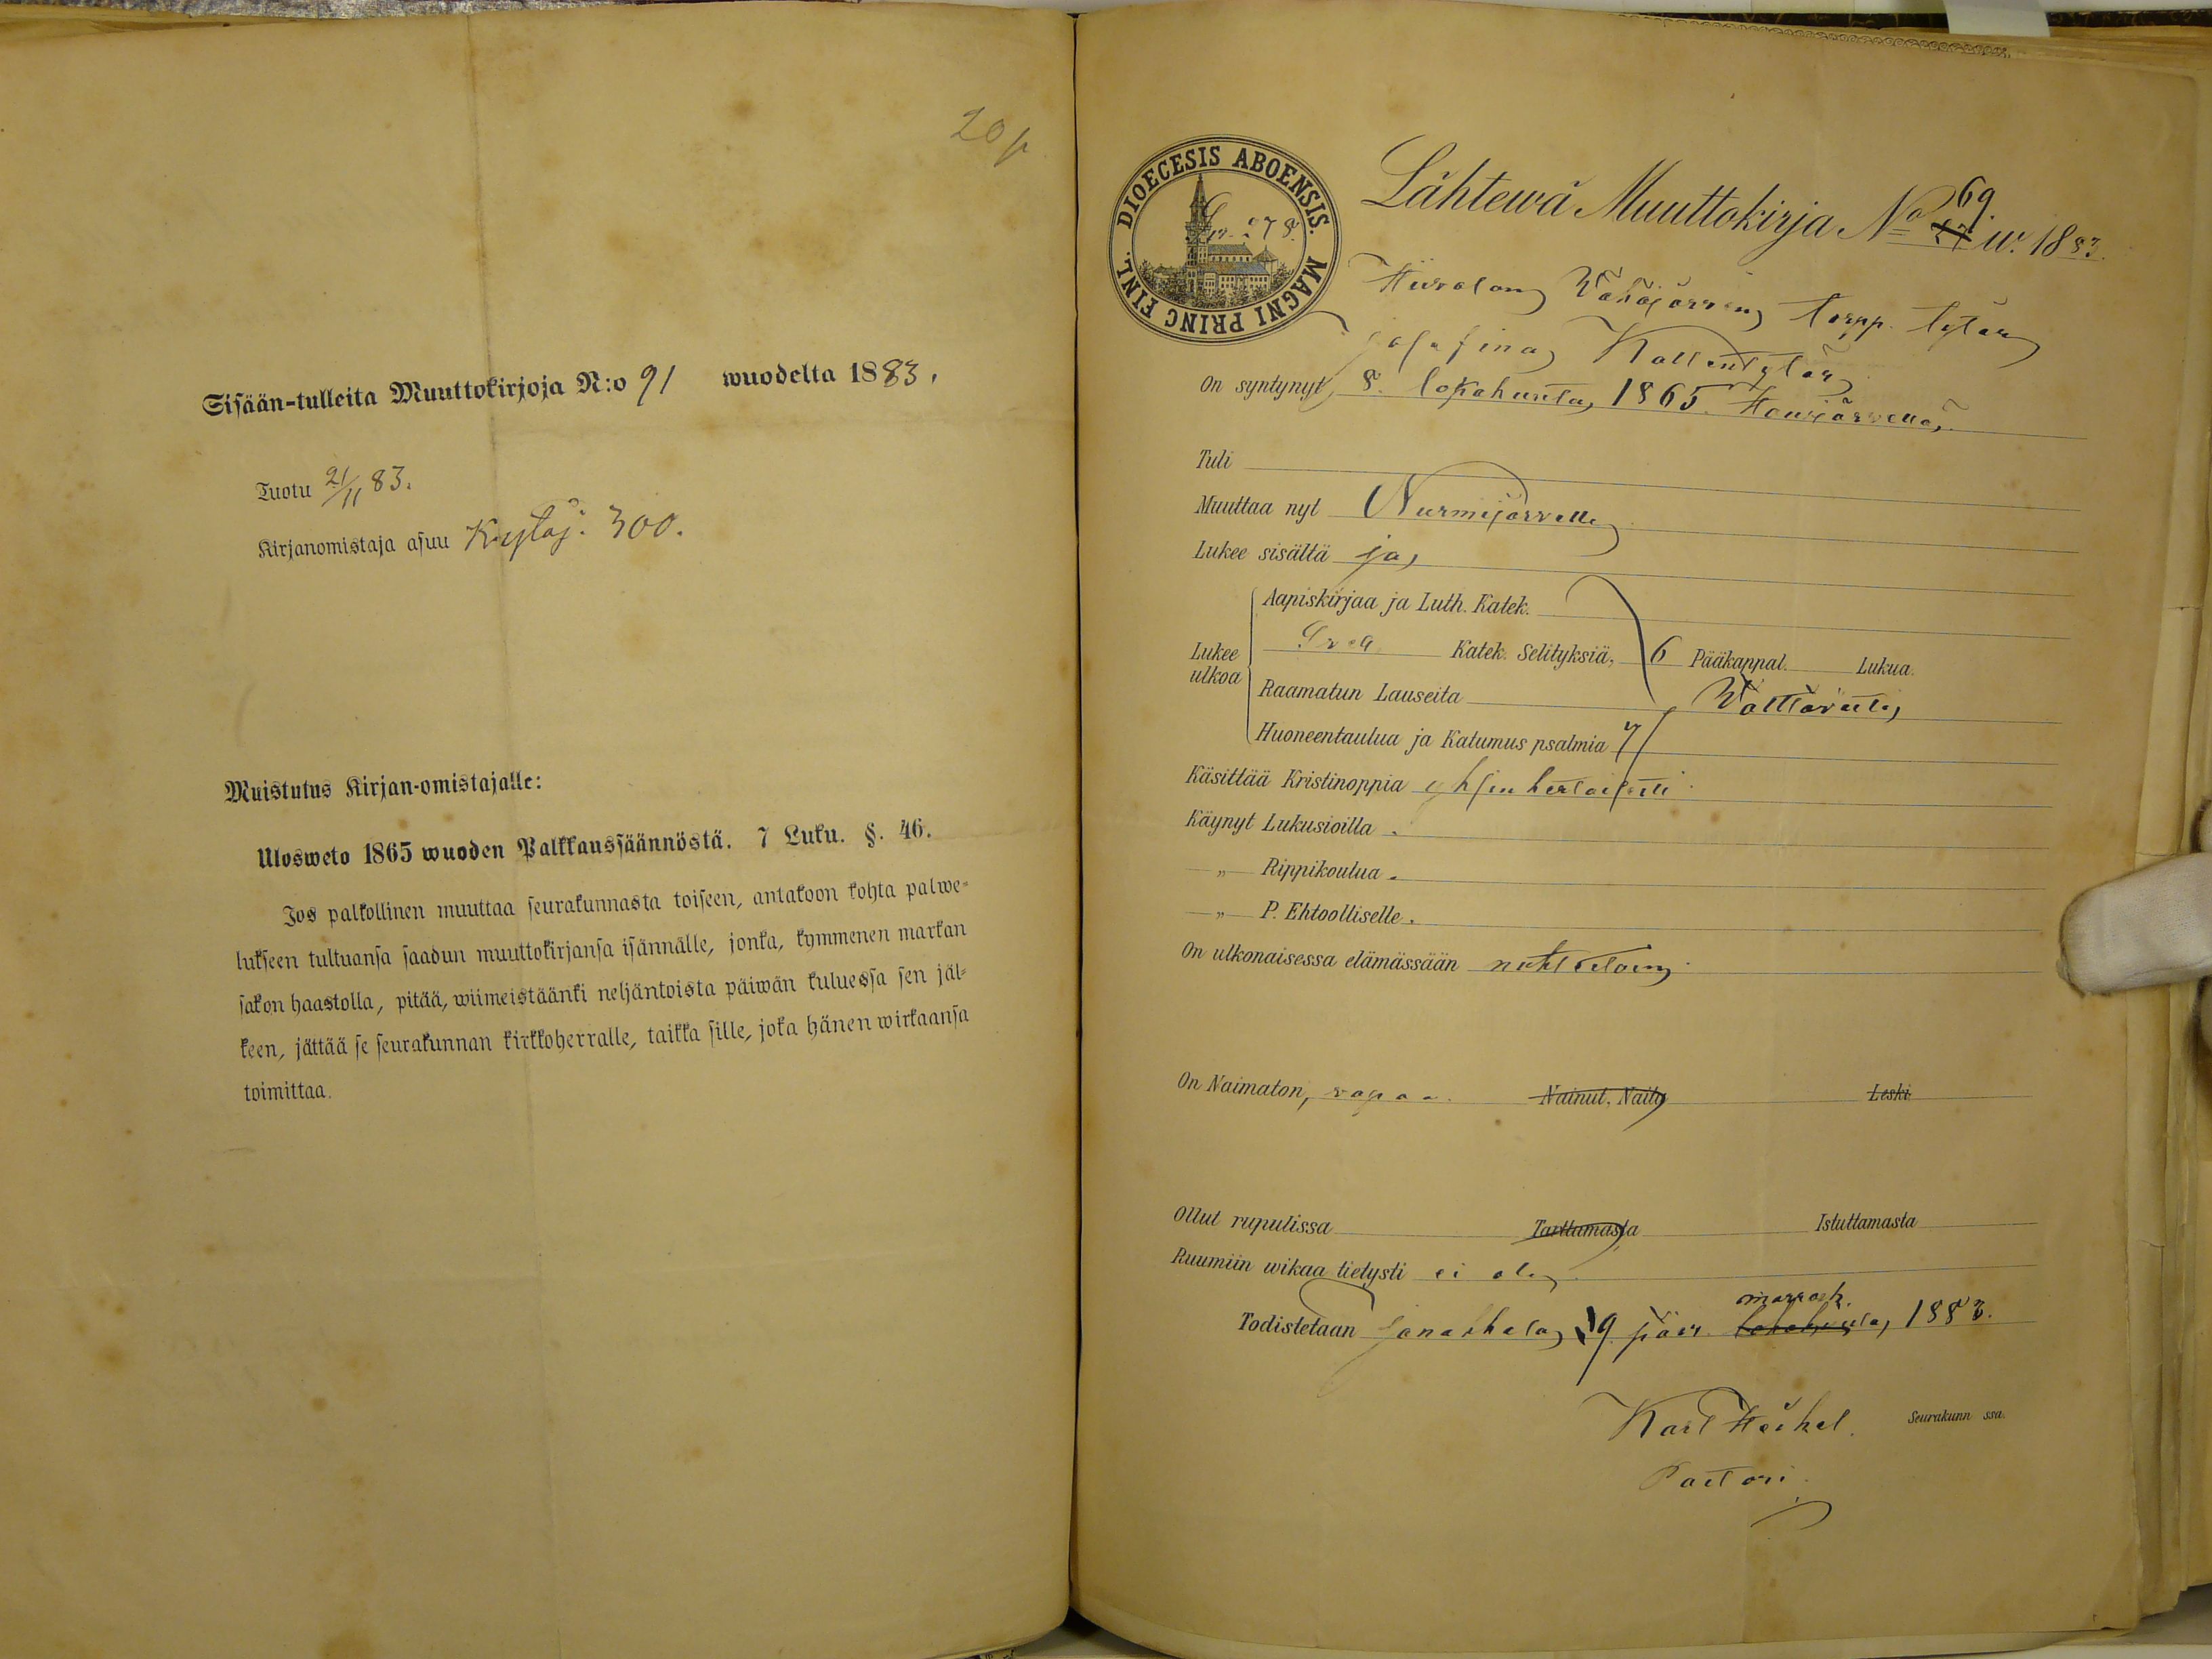 20 p
Sisään-tulleita Muuttokirjoja N:o 91 wuodelta 1883.
Tuotu 21/11 83.
Kirjanomistaja asuu Kytäj. 300.
Muistutus Kirjan-omistajalle:
Ulosweto 1865 wuoden Palkkaussäännöstä. 7 Luku. §. 46.
Jos palkollinen muuttaa seurakunnasta toiseen, antakoon kohta palwe-
lukseen tultuansa saadun muuttokirjansa isännälle, jonka, kymmenen markan
sakon haastolla, pitää, wiimeistäänki neljäntoista päiwän kuluessa sen jäl-
keen, jättää se seurakunnan kirkkoherralle, taikka sille, joka hänen wirkaansa
toimittaa.
DIOECESIS ABOENSIS. MAGNI PRINC FINL.
278.
Lähtewä Muuttokirja No 69. w. 1883.
Wähäjärven torpp. tytär
Josefina Kallentytär
On syntynyt 8. lokakuuta 1865. Hausjärvellä.
Tuli
Muuttaa nyt Nurmijärvelle
Lukee sisältä ja
Aapiskirjaa ja Luth. Katek.
Lukee ulkoa
Katek. Selityksiä, 6 Pääkappal. Lukua.
Raamatun Lauseita Wälttävästi
Huoneentaulua ja Katumus psalmia 7
Käsittää Kristinoppia yksinkertaisesti
Käynyt Lukusioilla
" Rippikoulua
" P. Ehtoolliselle
On ulkonaisessa elämässään nuhteeton
On Naimaton, vapaa. Nainut, Naitu Leski
Ollut rupulissa Tarttamasta Istuttamasta
Ruumiin wikaa tietysti ei ole
marrask.
Todistetaan Janakkala 19 päiv. lokakuuta 1883.
Karl Heikel. Seurakunn ssa.
Pastori.